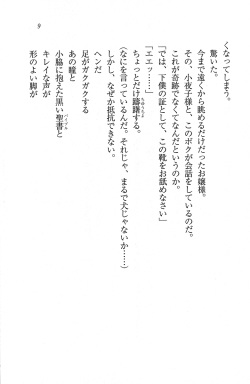 9
くなってしまう。
驚いた。
今まで遠くから眺めるだけだったお嬢様。
その、小夜子様と、このボクが会話をしているのだ。
これが奇跡でなくてなんだというのか。
「では、下僕の証として、この靴を舐めなさい」
「エエッ……」
ちょっとだけ躊躇する。
（なにを言っているんだ。それじゃ、まるで犬じゃないか……）
しかし、なぜか抵抗できない。
ヘンだ。
足がガクガクする
あの瞳と
小脇に抱えた黒い聖書と
キレイな声が
形のよい脚が